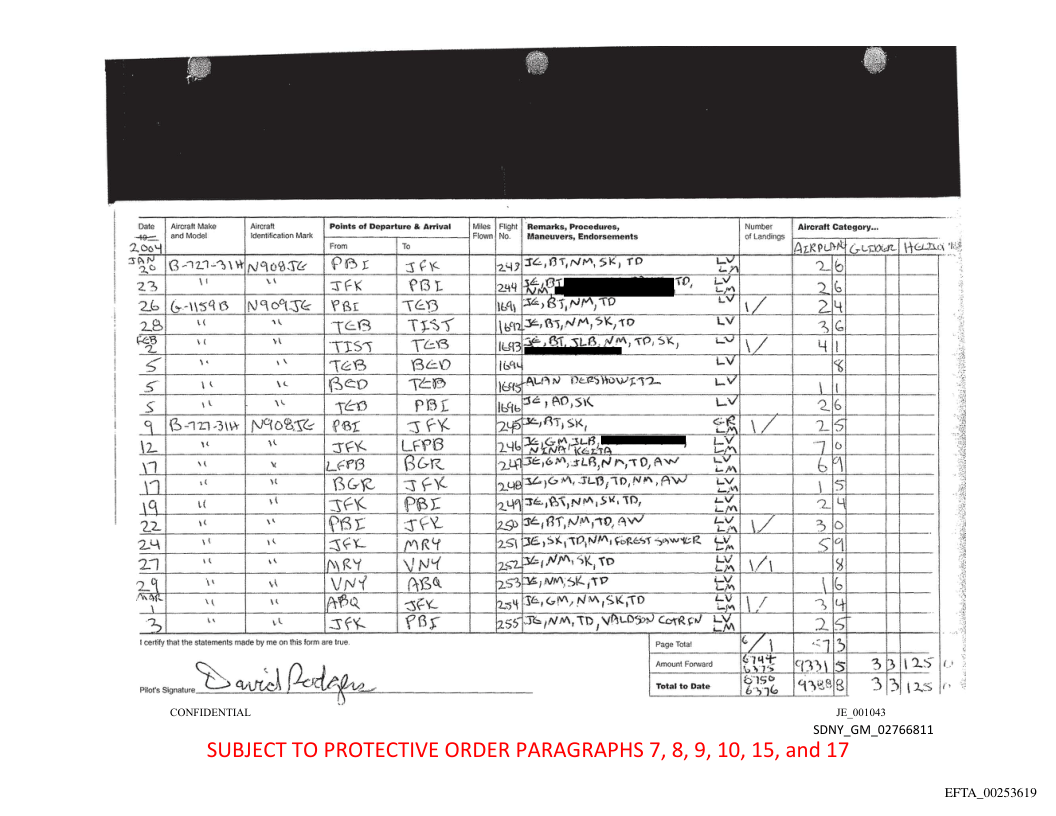 Date Aircraft Make and Model Aircraft Identification Mark Points of Departure & Arrival Miles Flown Flight No. Remarks, Procedures, Maneuvers, Endorsements Number of Landings Aircraft Category...
2004 From To AIRPLANE GLIDER
JAN 20 B-727-31H N908JE PBI JFK 243 JE, BT, NM, SK, TD LV LM 2 6
23 " " JFK PBI 244 JE, BT TD, NM, LV LM 2 6
26 G-1159B N909JE PBI TEB 1691 JE, BT, NM, TD LV 1/ 2 4
28 " " TEB TIST 1692 JE, BT, NM, SK, TD LV 3 6
FEB 2 " " TIST TEB 1693 JE, BT, JLB, NM, TD, SK, LV 1/ 4 1
5 " " TEB BED 1694 LV 8
5 " " BED TEB 1695 ALAN DERSHOWITZ LV 1 1
5 " " TEB PBI 1696 JE, AD, SK LV 2 6
9 B-727-31H N908JE PBI JFK 245 JE, BT, SK, LM 1/ 2 5
12 " " JFK LFPB 246 JE, GM, JLB, NINA KEITA LV LM 7 0
17 " " LFPB BGR 247 JE, GM, JLB, NM, TD, AW LV LM 6 9
17 " " BGR JFK 248 JE, GM, JLB, TD, NM, AW LV LM 1 5
19 " " JFK PBI 249 JE, BT, NM, SK, TD, LV LM 2 4
22 " " PBI JFK 250 JE, BT, NM, TD, AW LV LM 1/ 3 0
24 " " JFK MRY 251 JE, SK, TD, NM, FOREST SAWYER LV LM 5 9
27 " " MRY VNY 252 JE, NM, SK, TD LV LM 1/1 8
29 " " VNY ABQ 253 JE, NM, SK, TD LV LM 1 6
MAR 1 " " ABQ JFK 254 JE, GM, NM, SK, TD LV LM 1/ 3 4
3 " " JFK PBI 255 JE, NM, TD, VALDSON COTRIN LV LM 2 5
I certify that the statements made by me on this form are true. Page Total 6/1 573
Amount Forward 6744 6375 9331 5 3 3 125
Pilot's Signature David Rodgers Total to Date 6750 6376 9388 8 3 3 125
CONFIDENTIAL JE_001043
SDNY_GM_02766811
SUBJECT TO PROTECTIVE ORDER PARAGRAPHS 7, 8, 9, 10, 15, and 17
EFTA_00253619